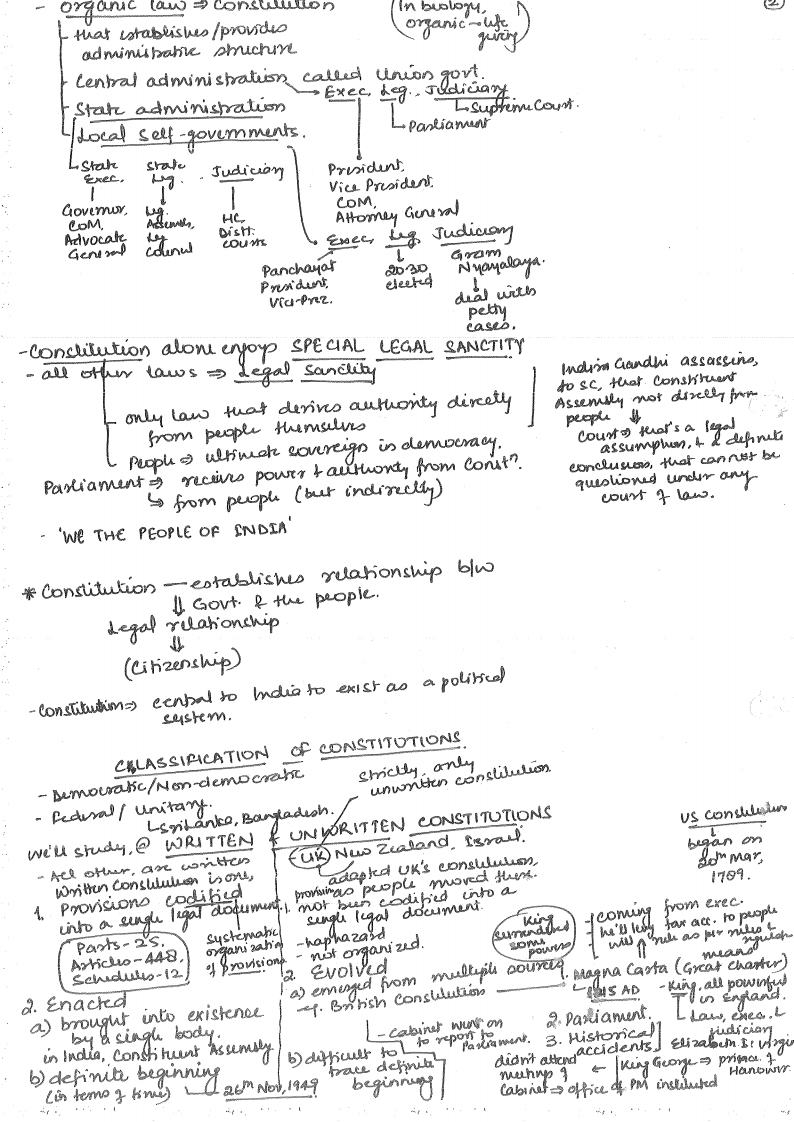 - organic law ⇒ Constitution
(In biology, organic → life giving)
2
- that establishes/provides
administrative structure
- Central administration called Union govt.
→ Exec, Leg., Judiciary
↳ Supreme Court.
↳ Parliament
- State administration
- Local self-governments.
↳ State Exec.
State Leg.
Judiciary
Governor,
COM,
Advocate
General
Leg.
Assembly,
Leg
Council
HC,
Distt.
courts
President,
Vice President,
COM,
Attorney General
→ Exec, Leg, Judiciary
Panchayat
President,
Vice-Prez.
20-30
elected
Gram
Nyayalaya.
deal with
petty
cases.
- Constitution alone enjoys SPECIAL LEGAL SANCTITY
- all other laws ⇒ Legal Sanctity
- only law that derives authority directly
from people themselves
- People ⇒ ultimate sovereign in democracy.
Parliament ⇒ receives power & authority from Constn.
↳ from people (but indirectly)
Indira Gandhi assassins,
to SC, that Constituent
Assembly not directly from
people ⇓
Court ⇒ that's a legal
assumption, & a definite
conclusion, that cannot be
questioned under any
court of law.
- 'WE THE PEOPLE OF INDIA'
* Constitution — establishes relationship b/w
⇓ Govt. & the people.
Legal relationship
⇓
(Citizenship)
- Constitution ⇒ central to India to exist as a political
system.
CLASSIFICATION of CONSTITUTIONS.
- Democratic/Non-democratic
- Federal / Unitary.
↳ Sri Lanka, Bangladesh.
strictly, only
unwritten constitution
We'll study, @ WRITTEN & UNWRITTEN CONSTITUTIONS
- All other, are written
Written Constitution is one,
1. Provisions codified
into a single legal document.
Parts - 25,
Articles - 448,
Schedules - 12
systematic
organization
of provisions
2. Enacted
a) brought into existence
by a single body.
in India, Constituent Assembly
b) definite beginning
(in terms of time) — 26th Nov, 1949
- UK, New Zealand, Israel.
adapted UK's constitution,
as people moved there.
1. provisions not been codified into a
single legal document.
- haphazard
- not organized.
2. Evolved
a) emerged from multiple sources
eg. British Constitution
- cabinet went on
to report to
Parliament.
b) difficult to
trace definite
beginning
US Constitution
began on
20th Mar,
1789.
King
surrendered
some
powers
- coming from exec.
- he'll levy tax acc. to people
- will rule as per rules & regulation
means
1. Magna Carta (Great Charter)
↳ 1215 AD
- King, all powerful
in England.
↳ Law, exec. &
judiciary
2. Parliament.
3. Historical
accidents
Elizabeth I: virgin
King George ⇒ prince of
Hanover.
didn't attend
meetings of ←
Cabinet ⇒ office of PM instituted